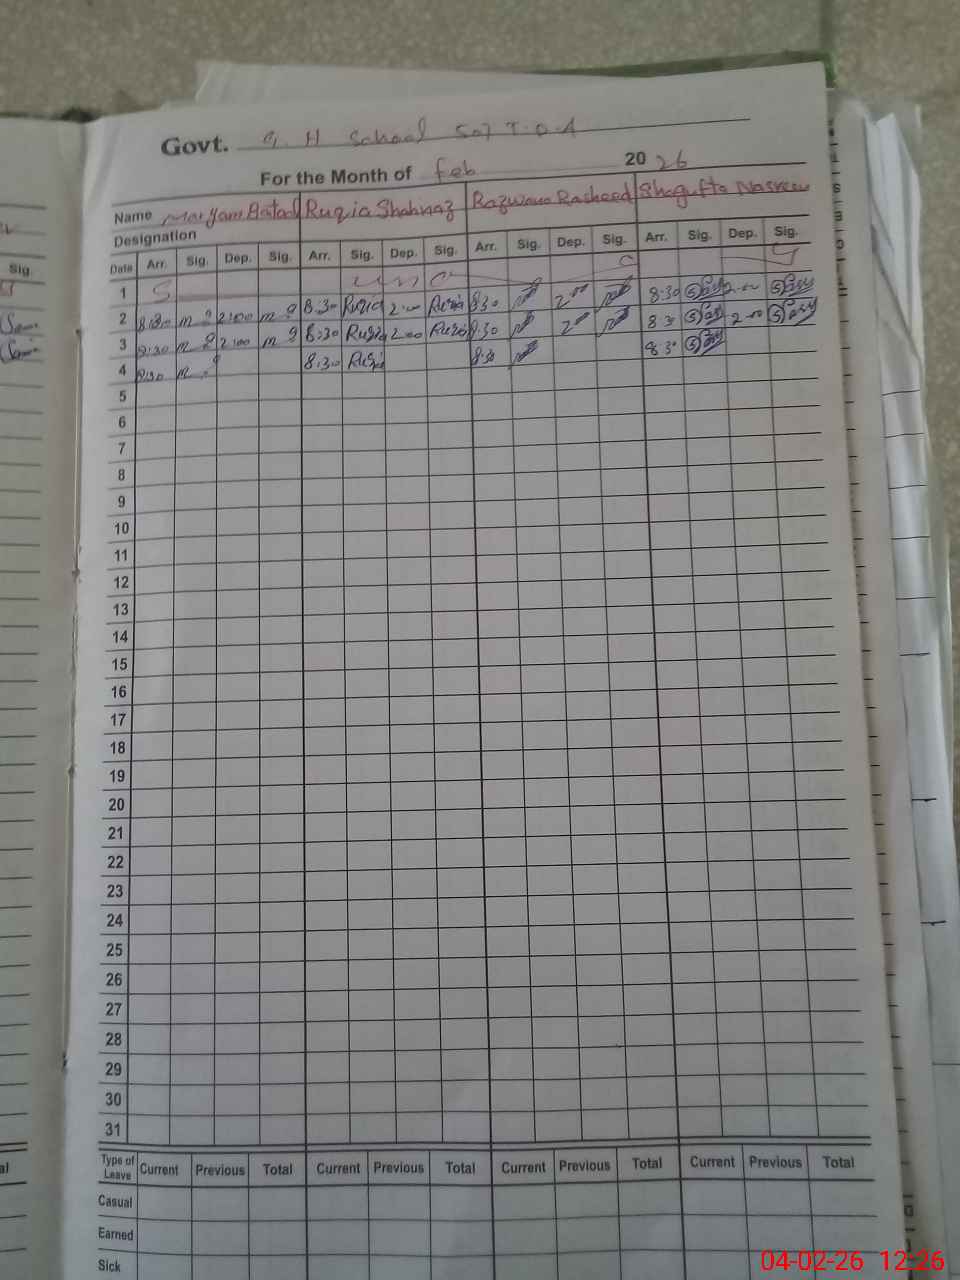 Govt. G. H School 507 T.D.A
For the Month of Feb 2026
Name Maryam Ruqia Shahnaz Razwana Rasheed Shagufta Nasreen
Designation
Date Arr. Sig. Dep. Sig. Arr. Sig. Dep. Sig. Arr. Sig. Dep. Sig. Arr. Sig. Dep. Sig.
1 S u n d a y
2 8:30 2:00 8:30 Ruqia 2:00 Ruqia 8:30 2:00 8:30 2:00
3 8:30 2:00 8:30 Ruqia 2:00 Ruqia 8:30 2:00 8:30 2:00
4 8:30 8:30 Ruqia 8:30 8:30
5
6
7
8
9
10
11
12
13
14
15
16
17
18
19
20
21
22
23
24
25
26
27
28
29
30
31
Type of Leave Current Previous Total Current Previous Total Current Previous Total Current Previous Total
Casual
Earned
Sick
04-02-26 12:26
Sig.